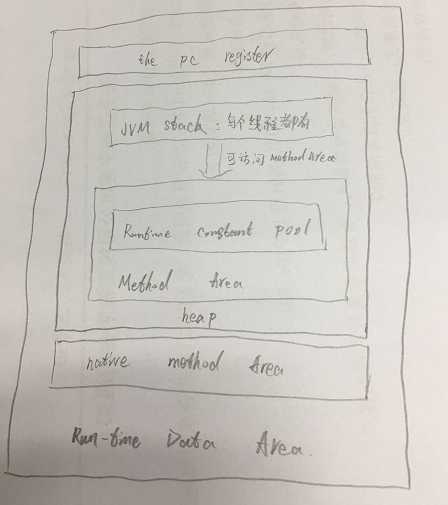 the pc register
JVM stack：每个线程都有
可访问 Method Area
Runtime constant pool
Method Area
heap
native method Area
Run-time Data Area.